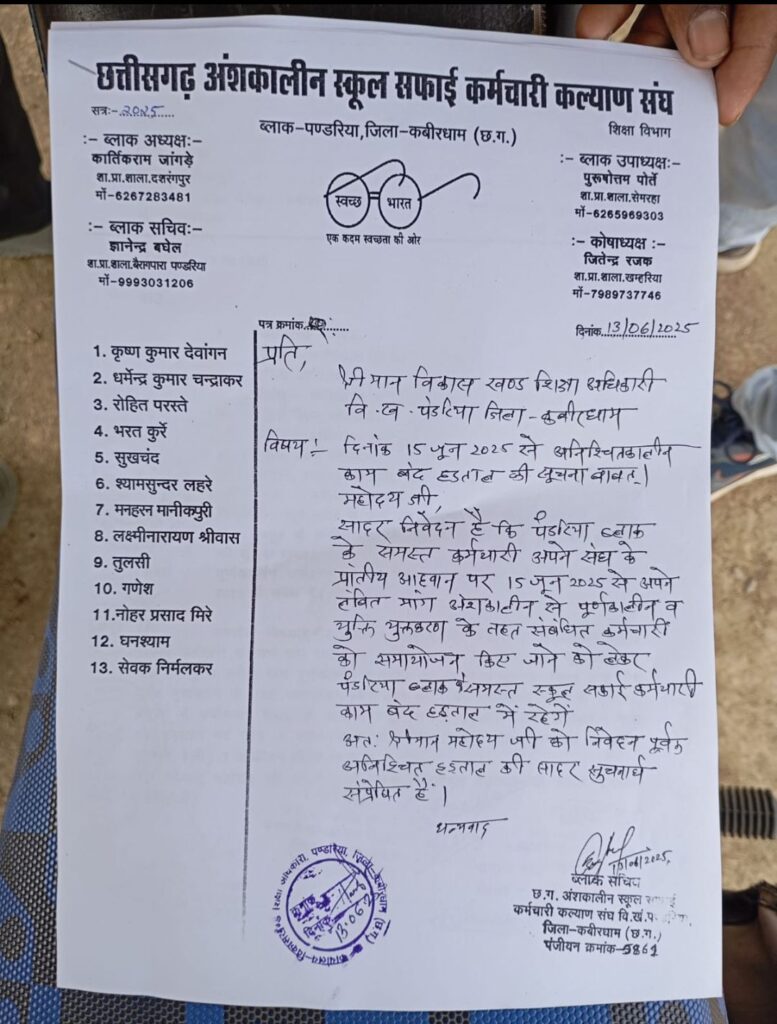 छत्तीसगढ़ अंशकालीन स्कूल सफाई कर्मचारी कल्याण संघ
सत्र:- 2025
ब्लाक-पण्डरिया,जिला-कबीरधाम (छ.ग.)
शिक्षा विभाग
:- ब्लाक अध्यक्ष:-
कार्तिकराम जांगड़े
शा.प्रा.शाला.दशरंगपुर
मों-6267283481
:- ब्लाक सचिव:-
ज्ञानेन्द्र बघेल
शा.प्रा.शाला.बैरागपारा पण्डरिया
मों-9993031206
स्वच्छ भारत
एक कदम स्वच्छता की ओर
:- ब्लाक उपाध्यक्ष:-
पुरूषोत्तम पोर्ते
शा.प्रा.शाला.सेमरहा
मों-6265969303
:- कोषाध्यक्ष :-
जितेन्द्र रजक
शा.प्रा.शाला.खम्हरिया
मों-7989737746
पत्र क्रमांक
दिनांक 13/06/2025
1. कृष्ण कुमार देवांगन
2. धर्मेन्द्र कुमार चन्द्राकर
3. रोहित परस्ते
4. भरत कुर्रे
5. सुखचंद
6. श्यामसुन्दर लहरे
7. मनहरन मानीकपुरी
8. लक्ष्मीनारायण श्रीवास
9. तुलसी
10. गणेश
11.नोहर प्रसाद मिरे
12. घनश्याम
13. सेवक निर्मलकर
प्रति,
श्रीमान विकास खण्ड शिक्षा अधिकारी
वि.ख. पंडरिया जिला-कबीरधाम
विषय:- दिनांक 15 जून 2025 से अनिश्चितकालीन
काम बंद हड़ताल की सूचना बाबत्।
महोदय जी,
सादर निवेदन है कि पंडरिया ब्लाक
के समस्त कर्मचारी अपने संघ के
प्रांतीय आहवान पर 15 जून 2025 से अपने
लंबित मांग अंशकालीन से पूर्णकालीन व
युक्ति युक्तकरण के तहत संबंधित कर्मचारी
को समायोजन किए जाने को लेकर
पंडरिया ब्लाक के समस्त स्कूल सफाई कर्मचारी
काम बंद हड़ताल में रहेगें
अतः श्रीमान महोदय जी को निवेदन पूर्वक
अनिश्चित हड़ताल की सादर सूचनार्थ
संप्रेषित है।
धन्यवाद
ब्लाक सचिव
छ.ग. अंशकालीन स्कूल सफाई
कर्मचारी कल्याण संघ वि.खं.प
जिला-कबीरधाम (छ.ग.)
पंजीयन क्रमांक-5861
कार्यालय-विकासखण्ड शिक्षा अधिकारी, पण्डरिया, जिला-कबीरधाम (छ.ग.)
दिनांक 13.06.2